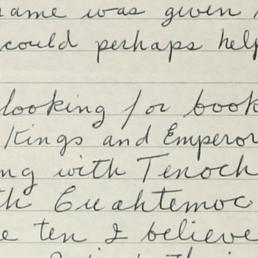 name was given
could perhaps help
looking for book
Kings and Emperor
ng with Tenoch
th Cuahtemoc
e ten I believe